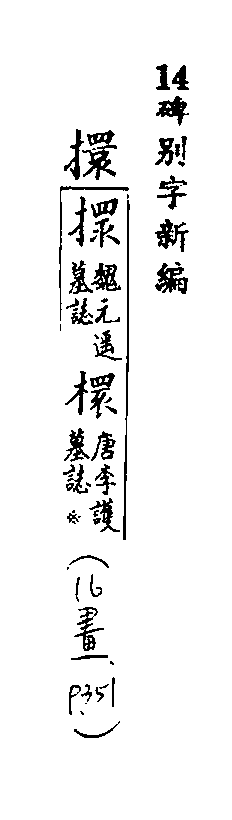 14碑別字新編
擐
擐 魏元遥墓誌
擐 唐李護墓誌※
(16畫 P.351)